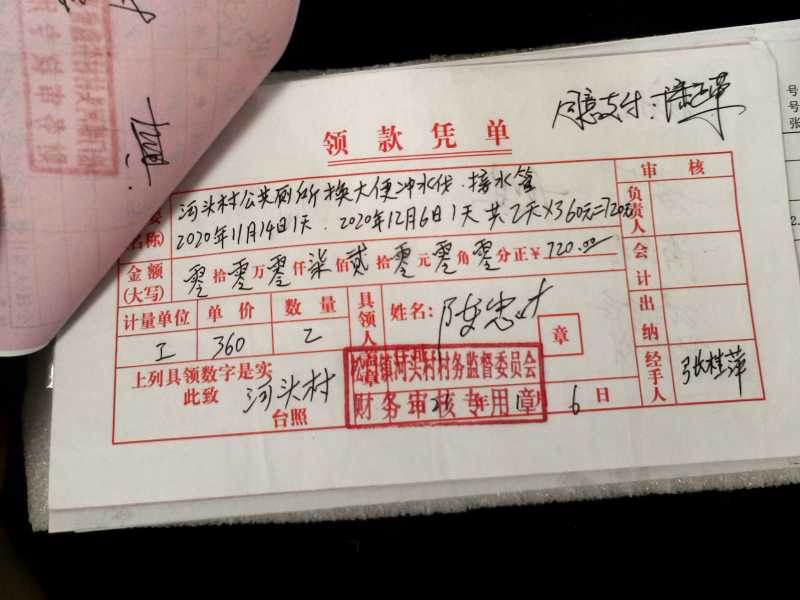 同意支付:
领款凭单
河头村公共厕所换大便冲水伐.接水管
名称)
2020年11月14日1天.2020年12月6日1天 共2天×360元=720元
金额
(大写)
零拾零万零仟柒佰贰拾零元零角零分正¥720.00
计量单位 单价 数量
工 360 2
具领人
姓名:
章
上列具领数字是实
此致
河头村
台照
镇河头村村务监督委员会
财务审核专用章
年
6日
审核
负责人
会计
出纳
经手人
张桂萍
号
号
张